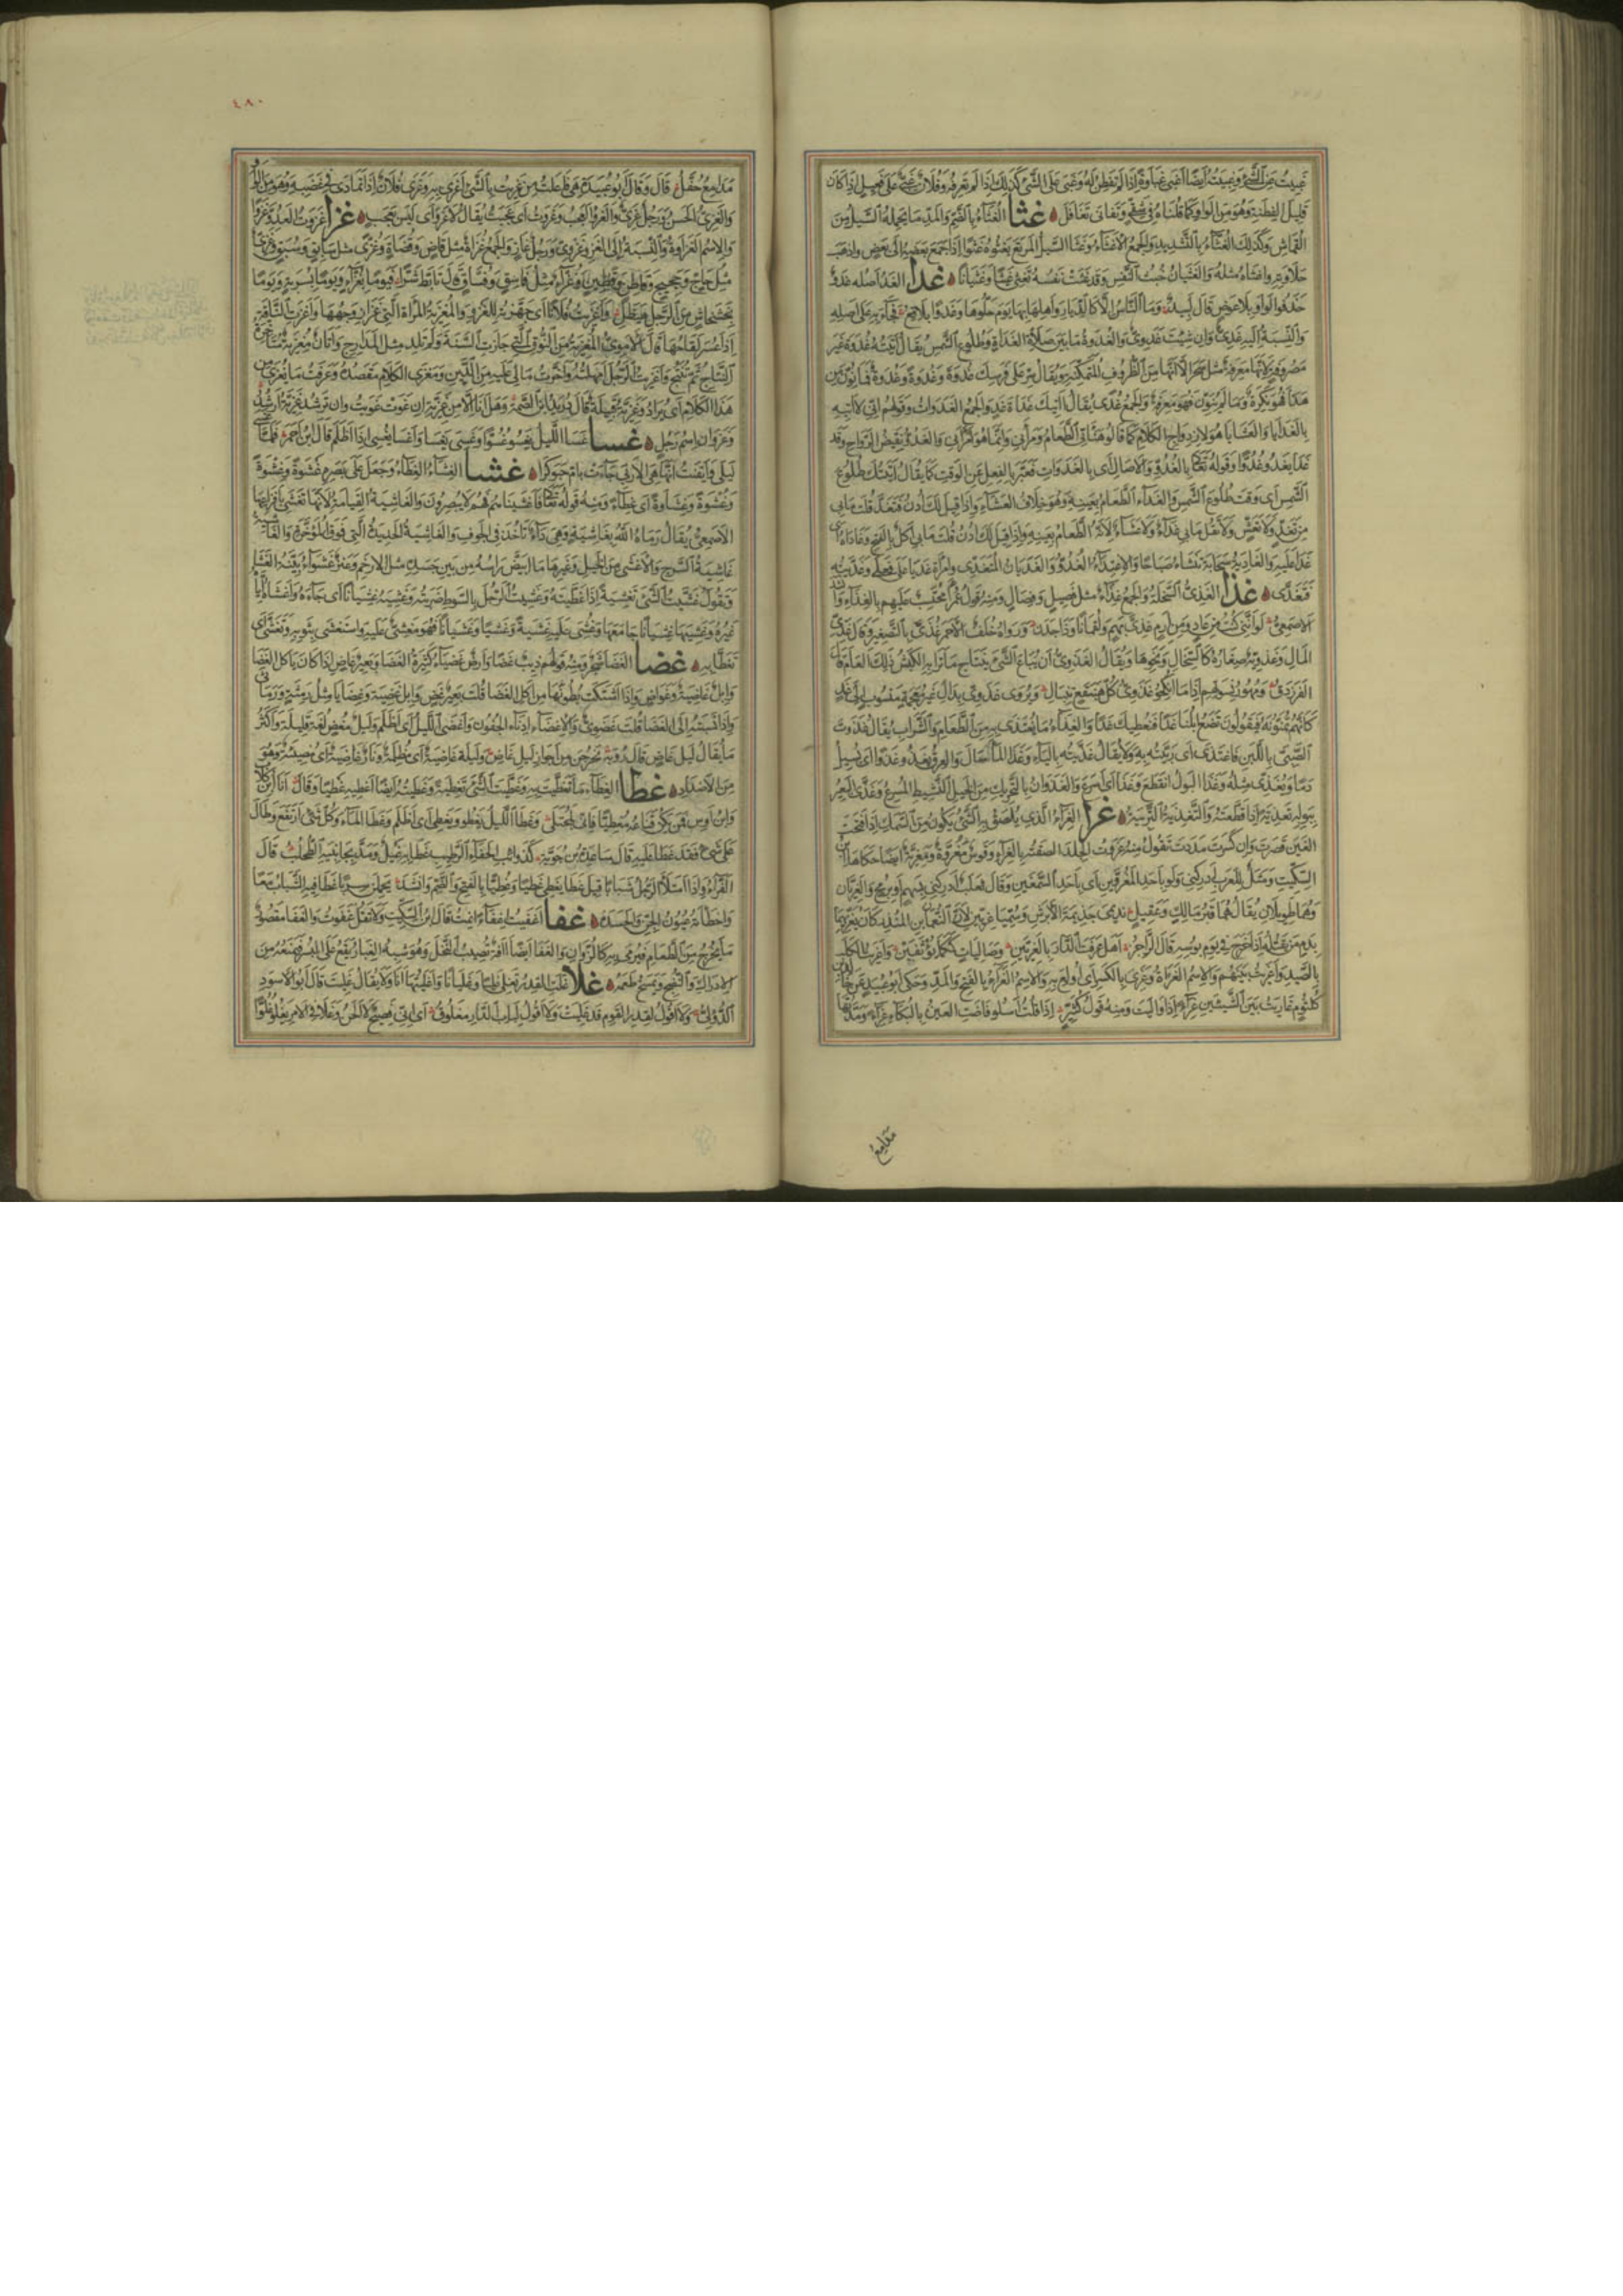 غبيت عن الشيء وغبيته ايضا اغبى غباوة اذا لم تفطن له وغبي علي الشيء كذلك اذا لم تعرفه وفلان غبي على فعيل اذا كان
قليل الفطنة وهو من الواو كما قلناه في شقي وتغابى تغافل غثا الغثاء بالضم والمد ما يحمله السيل من
القماش وكذلك الغثاء بالتشديد والجمع الاغثاء وغثا السيل المرتع يغثوه غثوا اذا جمع بعضه الى بعض واذهب
حلاوته واغثاه مثله والغثيان خبث النفس وقد غثت نفسه تغثي غثيا وغثيانا غدا الغد اصله غدو
حذفوا الواو بلا عوض قال لبيد وما الناس الا كالديار واهلها بها يوم حلوها وغدوا بلاقع فجاء به على اصله
والنسبة اليه غدي وان شئت غدوي والغدوة ما بين صلاة الغداة وطلوع الشمس يقال اتيته غدوة غير
مصروفة لانها معرفة مثل سحر الا انها من الظروف المتمكنة ويقال سر على فرسك غدوة وغدوة وغدوة وغدوة فما نون من
هذا فهو نكرة وما لم ينون فهو معرفة والجمع غدى يقال اتيك غداة غد والجمع الغدوات وقولهم اني لاتيه
بالغدايا والعشايا هو لازدواج الكلام كما قالوا هنأني الطعام ومرأني وانما هو امرأني والغدو نقيض الرواح وقد
غدا يغدو غدوا وقوله تعالى بالغدو والاصال اي بالغدوات فعبر بالفعل عن الوقت كما يقال اتيتك طلوع
الشمس اي وقت طلوع الشمس والغداء الطعام بعينه وهو خلاف العشاء واذا قيل لك ادن فتغد قلت ما بي
من تغد ولا تعش ولا تقل ما بي غداء ولا عشاء لانه الطعام بعينه واذا قيل لك ادن فكل قلت ما بي اكل بالفتح وغاداه اي
غدا عليه والغادية سحابة تنشأ صباحا والاغتداء الغدو والغديان المتغدي وامرأة غديا على فعلى وغديته
فتغدى غذا الغذي السخلة والجمع غذاء مثل فصيل وفصال ومنه قول عمر احتسب عليهم بالغذاء وانشد
الاصمعي لو انني كنت من عاد ومن ارم غذي بهم ولقمانا وذا جدن ورواه خلف الاحمر غذي بالتصغير وقال غذي
المال وغذويه صغاره كالسخال ونحوها ويقال الغذوي ان يباع الشيء بنتاج ما نزا به الكبش ذلك العام قال
الفرزدق ومهور نسوتهم اذا ما انكحوا غذوي كل هبنقع تنبال ويروى غدوي بدال غير معجمة منسوب الى غد
كانهم يمنونه فيقولون تضع ابلنا غدا فنعطيك غدا والغذاء ما يغتذى به من الطعام والشراب يقال غذوت
الصبي باللبن فاغتذى اي ربيته به ولا يقال غذيته بالياء وغذا الماء سال والعرق يغذو غذوا اي يسيل
دما ويغذي مثله وغذا البول انقطع وغذا اي اسرع والغذوان بالتحريك من الخيل النشيط المسرع وغذى البعير
ببوله تغذية اذا قطعه والتغذية التربية غرا الغراء الذي يلصق به الشيء يكون من السمك اذا فتحت
الغين قصرت وان كسرت مددت تقول منه غروت الجلد الصقته بالغراء وقوس مغروة ومغرية ايضا حكاها ابن
السكيت ومثل للعرب ادركني ولو باحد المغروين اي باحد السهمين وقال ثعلب ادركني بسهم او برمح والغريان
وهما طويلان يقال هما قبر مالك وعقيل نديمي جذيمة الابرش وسميا غريين لان النعمان بن المنذر كان يغريهما
بدم من يقتله اذا خرج في يوم بؤسه قال الراجز اهل عرفت الدار بالغريين وصاليات ككما يؤثفين واغريت الكلب
بالصيد واغريت بينهم والاسم الغراة وغري به بالكسر اي اولع به والاسم الغراء بالفتح والمد وحكى ابو عبيد عن خالد بن
كلثوم غاريت بين الشيئين غراء اذا واليت ومنه قول كثير اذا قلت اسلو فاضت العين بالبكاء غراء ومدتها
مدامع
٤٨٠
مدامع حفل قال وقال ابو عبيدة هي فاعلت من غريت بالشيء اغرى به وغري فلان اذا تمادى في غضبه وهو من الواو
والغري الحسن ورجل غري والغرو العجب وغروت اي عجبت يقال لا غرو اي ليس بعجب غزا غزوت العدو غزوا
والاسم الغزاوة والنسبة الى الغزو غزوي ورجل غاز والجمع غزاة مثل قاض وقضاة وغزى مثل سابق وسبق وغزي
مثل حاج وحجيج وقاطن وقطين وغزاء مثل فاسق وفساق قال تابط شرا فيوما بغزاء ويوما بسربة ويوما
بخشخاش من الرجل هيضل واغزيت فلانا اي جهزته للغزو والمغزية المرأة التي غزا زوجها واغزت الناقة
اذا عسر لقاحها قال الاموي المغزية من النوق التي جازت السنة ولم تلد مثل المدراج واتان مغزية متأخرة
النتاج ثم تنتج واغزيت الرجل امهلته واخرت ما لي عليه من الدين ومغزى الكلام مقصده وعرفت ما يغزى من
هذا الكلام اي يراد وغزية قبيلة قال دريد بن الصمة وهل انا الا من غزية ان غوت غويت وان ترشد غزية ارشد
وغزوان اسم رجل غسا غسا الليل يغسو غسوا وغسي يغسى واغسى يغسي اذا اظلم قال ابن احمر فلما غسى
ليلي وايقنت انها هي الاربى جاءت بام حبوكرا غشا الغشاء الغطاء وجعل على بصره غشوة وغشوة
وغشوة وغشاوة اي غطاء ومنه قوله تعالى فاغشيناهم فهم لا يبصرون والغاشية القيامة لانها تغشى بافزاعها
الاصمعي يقال رماه الله بغاشية وهي داء تأخذ في الجوف والغاشية الحديدة التي فوق المؤخرة والغاشية
غاشية السرج والاغشى من الخيل وغيرها ما ابيض رأسه من بين جسده مثل الارخم وعنز غشواء بينة الغشا
وتقول غشيت الشيء تغشية اذا غطيته وغشيت الرجل بالسوط ضربته وغشيه غشيانا اي جاءه واغشاه اياه
غيره وغشيها غشيانا جامعها وغشي عليه غشية وغشيا وغشيانا فهو مغشي عليه واستغشى بثوبه وتغشى اي
تغطى به غضا الغضا شجر ومنه قولهم ذئب غضا وارض غضياء كثيرة الغضا وبعير غاض اذا كان يأكل الغضا
وابل غاضية وغواض واذا اشتكت بطونها من اكل الغضا قلت بعير غض وابل غضية وغضايا مثل رمثة ورماثى
واذا نسبته الى الغضا قلت غضوي والاغضاء ادناء الجفون واغضى الليل اي اظلم وليل مغض لغة قليلة واكثر
ما يقال ليل غاض قال رؤبة يخرجن من اجواز ليل غاض وليلة غاضية اي مظلمة ونار غاضية اي مضيئة وهو
من الاضداد غطا الغطاء ما تغطيت به وغطيت الشيء تغطية وغطيته ايضا اغطيه غطيا وقال انا ابن كلاب
وابن اوس فمن يكن قناعه مغطيا فاني لمجتلى وغطا الليل يغطو ويغطي اي اظلم وغطا الماء وكل شيء ارتفع وطال
على شيء فقد غطا عليه قال ساعدة بن جؤية كذوائب الحفأ الرطيب غطا به غيل ومد بجانبيه الطحلب قال
الفراء واذا امتلأ الرجل شبابا قيل غطا يغطي غطيا وغطيا بالفتح والضم وانشد يحملن سربا غطى فيه الشباب معا
واخطأته عيون الجن والحسده غفا اغفيت اغفاء نمت قال ابن السكيت ولا تقل غفوت والغفا مقصور
ما يخرج من الطعام فيرمى به كالزؤان والغفا ايضا افة تصيب النخل وهو شبه الغبار يقع على البسر فيمنعه من
الادراك والنضج ويمسخ طعمه غلا غلت القدر تغلي غليا وغليانا واغليتها انا ولا يقال غليت قال ابو الاسود
الدؤلي ولا اقول لقدر القوم قد غليت ولا اقول لباب الدار مغلوق اي اني فصيح لا الحن وغلا في الامر يغلو غلوا